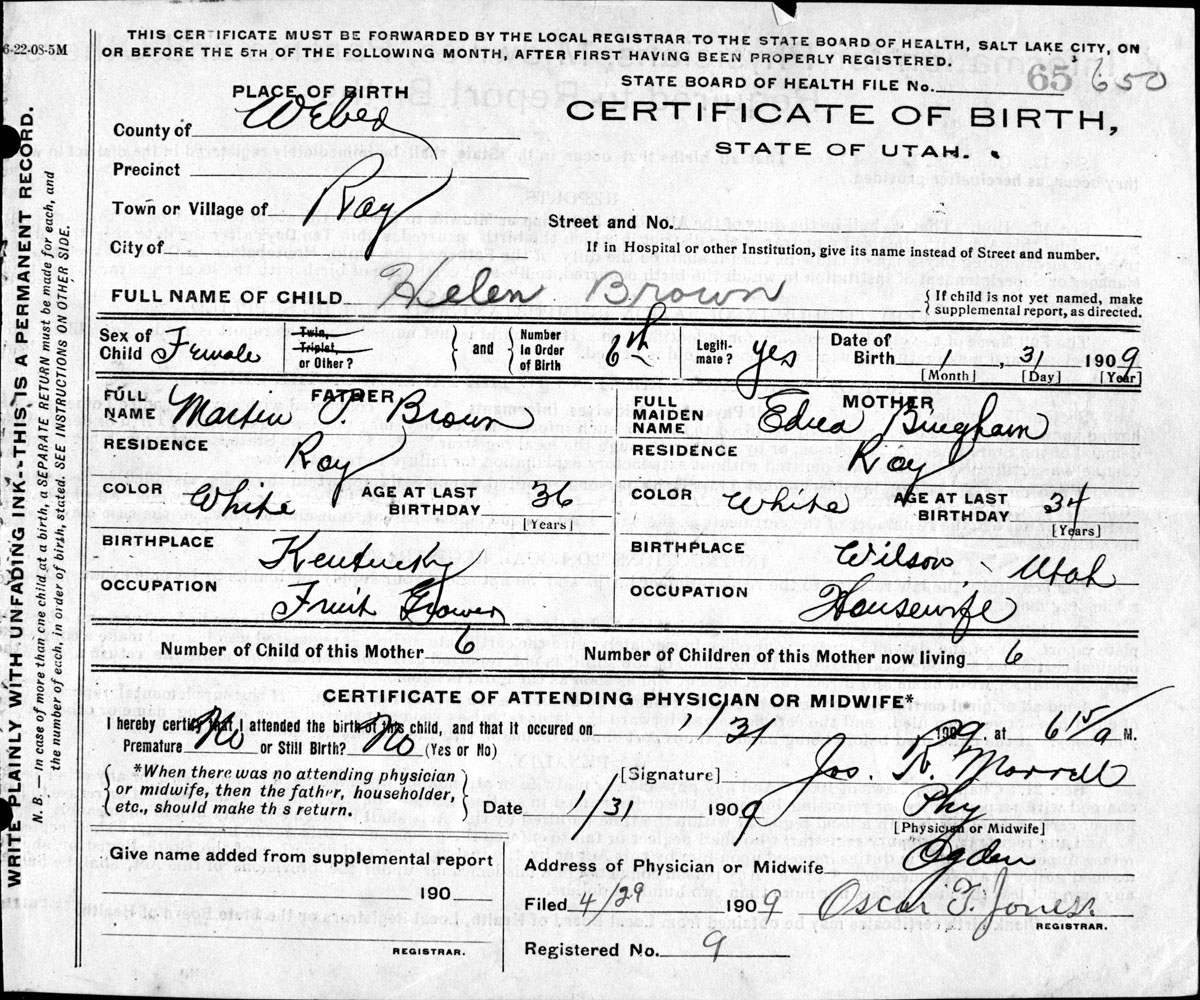 6-22-08-5M
THIS CERTIFICATE MUST BE FORWARDED BY THE LOCAL REGISTRAR TO THE STATE BOARD OF HEALTH, SALT LAKE CITY, ON
OR BEFORE THE 5TH OF THE FOLLOWING MONTH, AFTER FIRST HAVING BEEN PROPERLY REGISTERED.
STATE BOARD OF HEALTH FILE No. 65 650
PLACE OF BIRTH
CERTIFICATE OF BIRTH,
STATE OF UTAH.
County of Weber
Precinct
Town or Village of Roy
Street and No.
City of
If in Hospital or other Institution, give its name instead of Street and number.
FULL NAME OF CHILD Helen Brown
{ If child is not yet named, make
supplemental report, as directed.
Sex of Child Female
Twin, Triplet, or Other?
and
Number In Order of Birth 6th
Legiti-mate? yes
Date of Birth 1, 31 1909
[Month] [Day] [Year]
FATHER
FULL NAME Martin Brown
RESIDENCE Roy
COLOR White AGE AT LAST BIRTHDAY 36
[Years]
BIRTHPLACE Kentucky
OCCUPATION Fruit Grower
MOTHER
FULL MAIDEN NAME Bingham
RESIDENCE Roy
COLOR White AGE AT LAST BIRTHDAY 34
[Years]
BIRTHPLACE Wilson, Utah
OCCUPATION Housewife
Number of Child of this Mother 6
Number of Children of this Mother now living 6
CERTIFICATE OF ATTENDING PHYSICIAN OR MIDWIFE*
I hereby certify that I attended the birth of this child, and that it occured on 1/31 1909, at M.
Premature No or Still Birth? No (Yes or No)
*When there was no attending physician
or midwife, then the father, householder,
etc., should make th s return.
[Signature] Jos. R. Morrell
Date 1/31 1909 Phy
[Physician or Midwife]
Give name added from supplemental report
190
REGISTRAR.
Address of Physician or Midwife Ogden
Filed 4/29 1909 Oscar F Jones
REGISTRAR.
Registered No. 9
WRITE PAINLY WITH UNFADING INK--THIS IS A PERMANENT RECORD.
N. B. — In case of more than one child at a birth, a SEPARATE RETURN must be made for each, and
the number of each, in order of birth, stated. SEE INSTRUCTIONS ON OTHER SIDE.